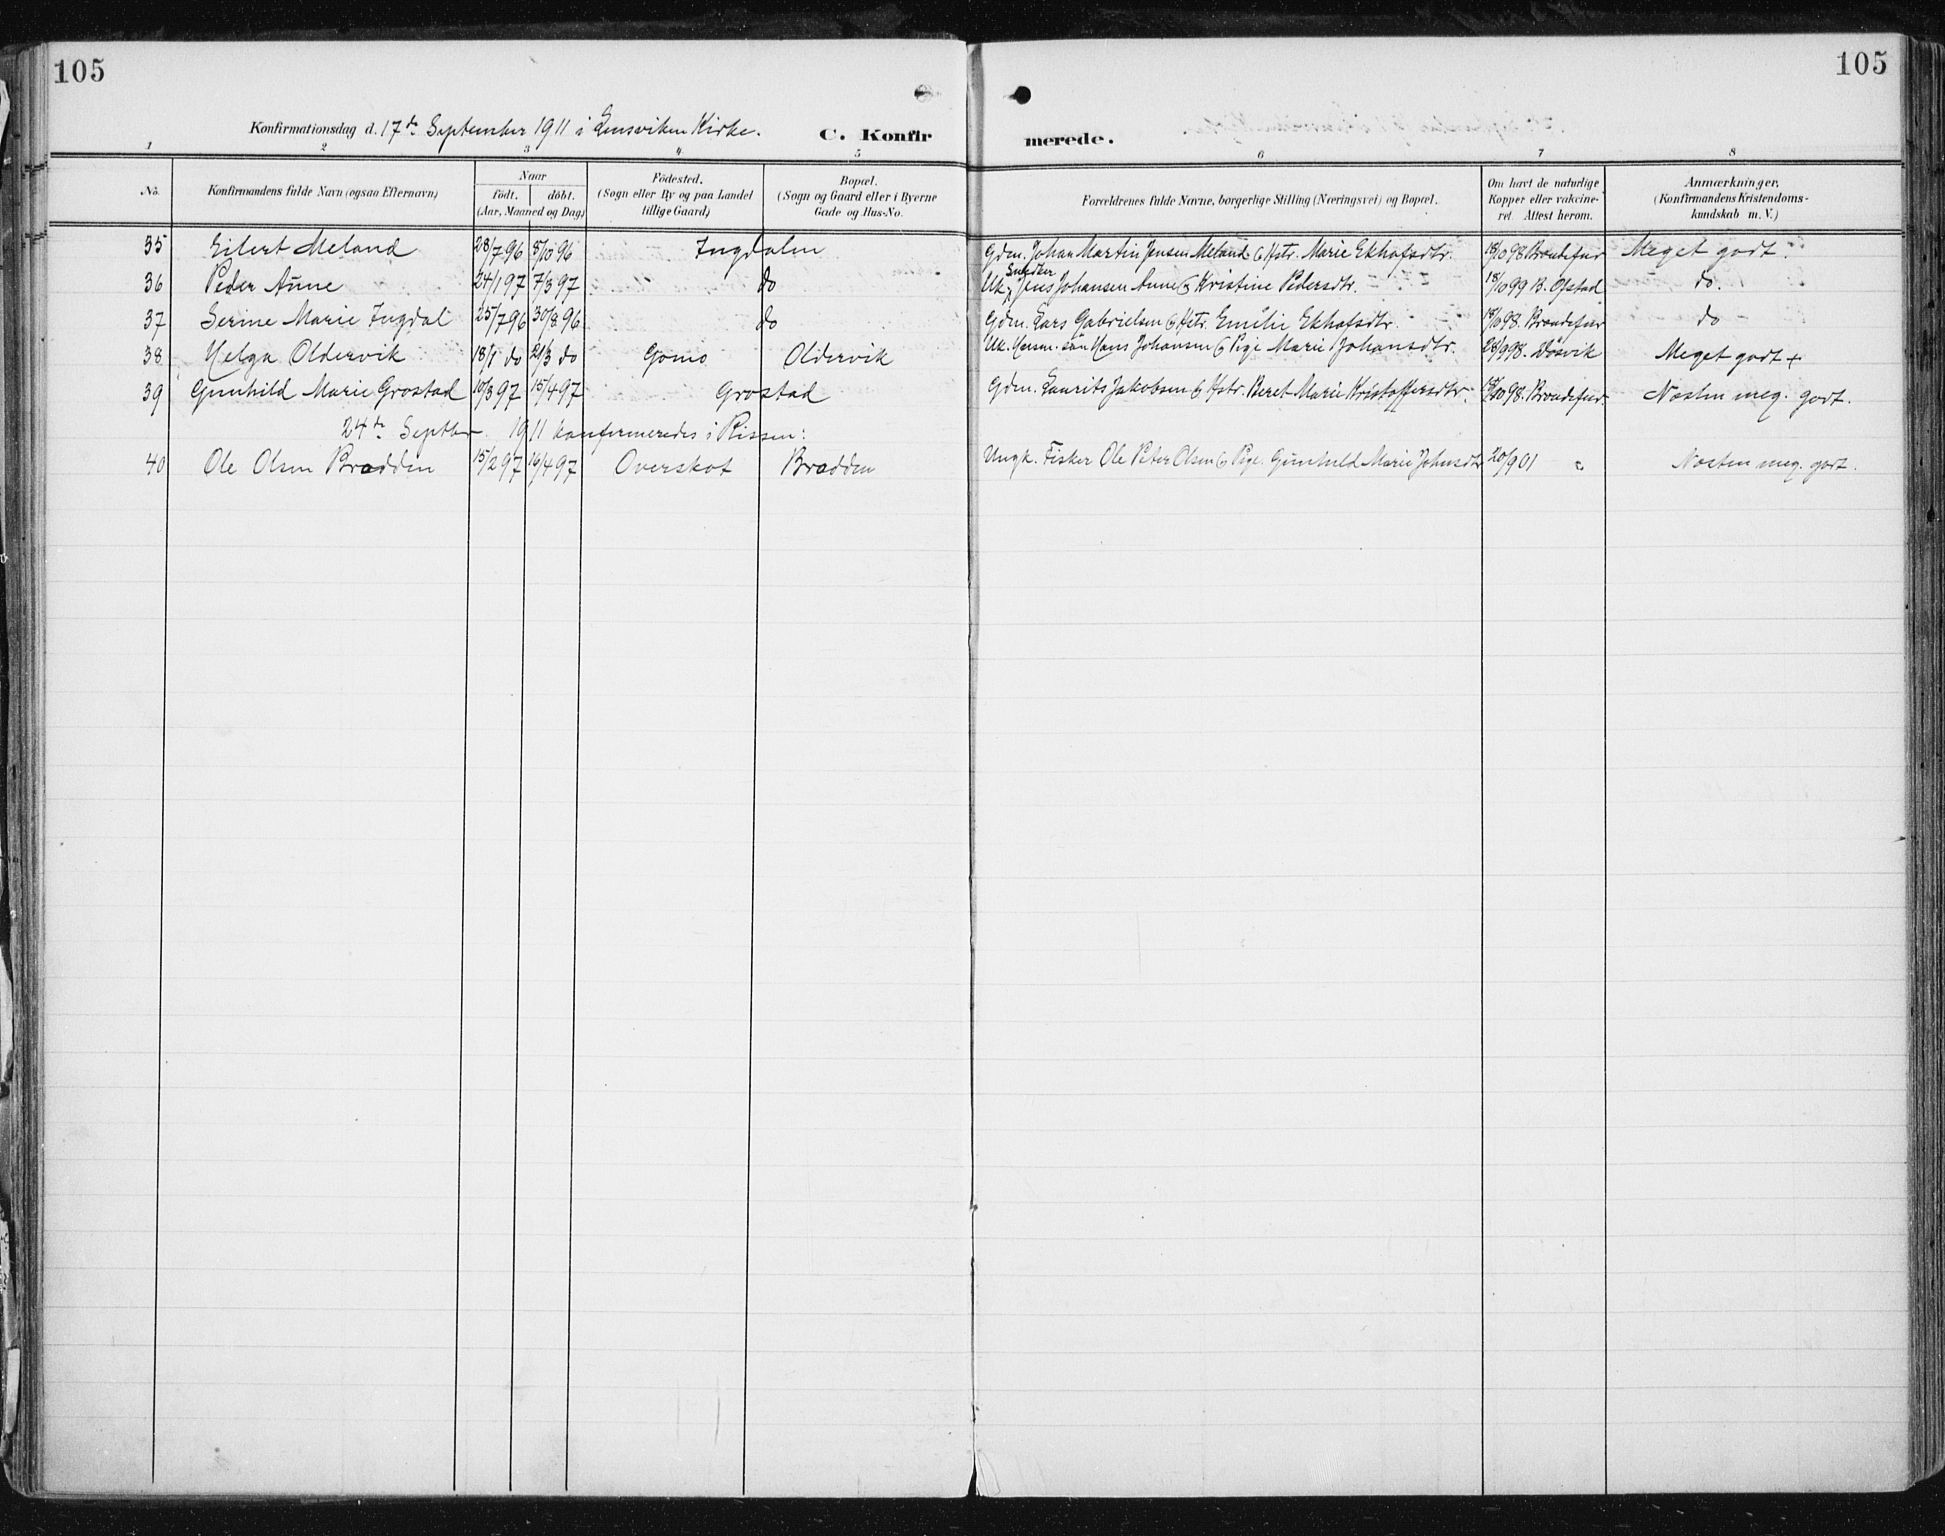 105
105
Konfirmationsdag d. 17de September 1911 i Lensviken Kirke.
C. Konfirmerede.
1 2 3 4 5 6 7 8
No. Konfirmandens fulde Navn (ogsaa Efternavn) Naar födt. döbt. (Aar, Maaned og Dag) Födested. (Sogn eller By og paa Landet tillige Gaard) Bopæl. (Sogn og Gaard eller i Byerne Gade og Hus-No. Forældrenes fulde Navne, borgerlige Stilling (Næringsvei) og Bopæl. Om havt de naturlige Kopper eller vakcineret. Attest herom. Anmærkninger. (Konfirmandens Kristendomskundskab m. V.)
35 Eilert Meland 28/7 96 8/10 96 Ingdalen Gdm. Johan Martin Jensen Meland & Hstr. Marie Ekhofsdtr. 18/10 98 Brandefur Meget godt.
36 Peder Aune 24/1 97 7/3 97 do Uk. Snedker Jens Johansen Aune & Kristine Pedersdtr. 18/10 99 B. Ofstad do.
37 Serine Marie Ingdal 25/7 96 30/8 96 do Gdm. Lars Gabrielsen & Hstr. Emilie Ekhofsdtr. 18/10 98. Brandefur do
38 Helga Oldervik 18/1 do 21/3 do Gomo Oldervik Uk. Hans Johansen & Pige Marie Johansdtr. 23/9 98. Døsvik Meget godt +
39 Gunhild Marie Grostad 10/3 97 15/4 97 Grostad Gdm. Laurits Jakobsen & Hstr. Beret Marie Kristoffersdtr. 18/10 98. Brandefur. Næsten meg. godt.
24de Septbr. 1911 konfirmeredes i Rissen:
40 Ole Olsen Brødden 15/2 97 16/4 97 Overskot Brødden Ungk. Fisker Ole Peter Olsen & Pige Gunhild Marie Johnsdtr 20/9 01 " Næsten meg. godt.